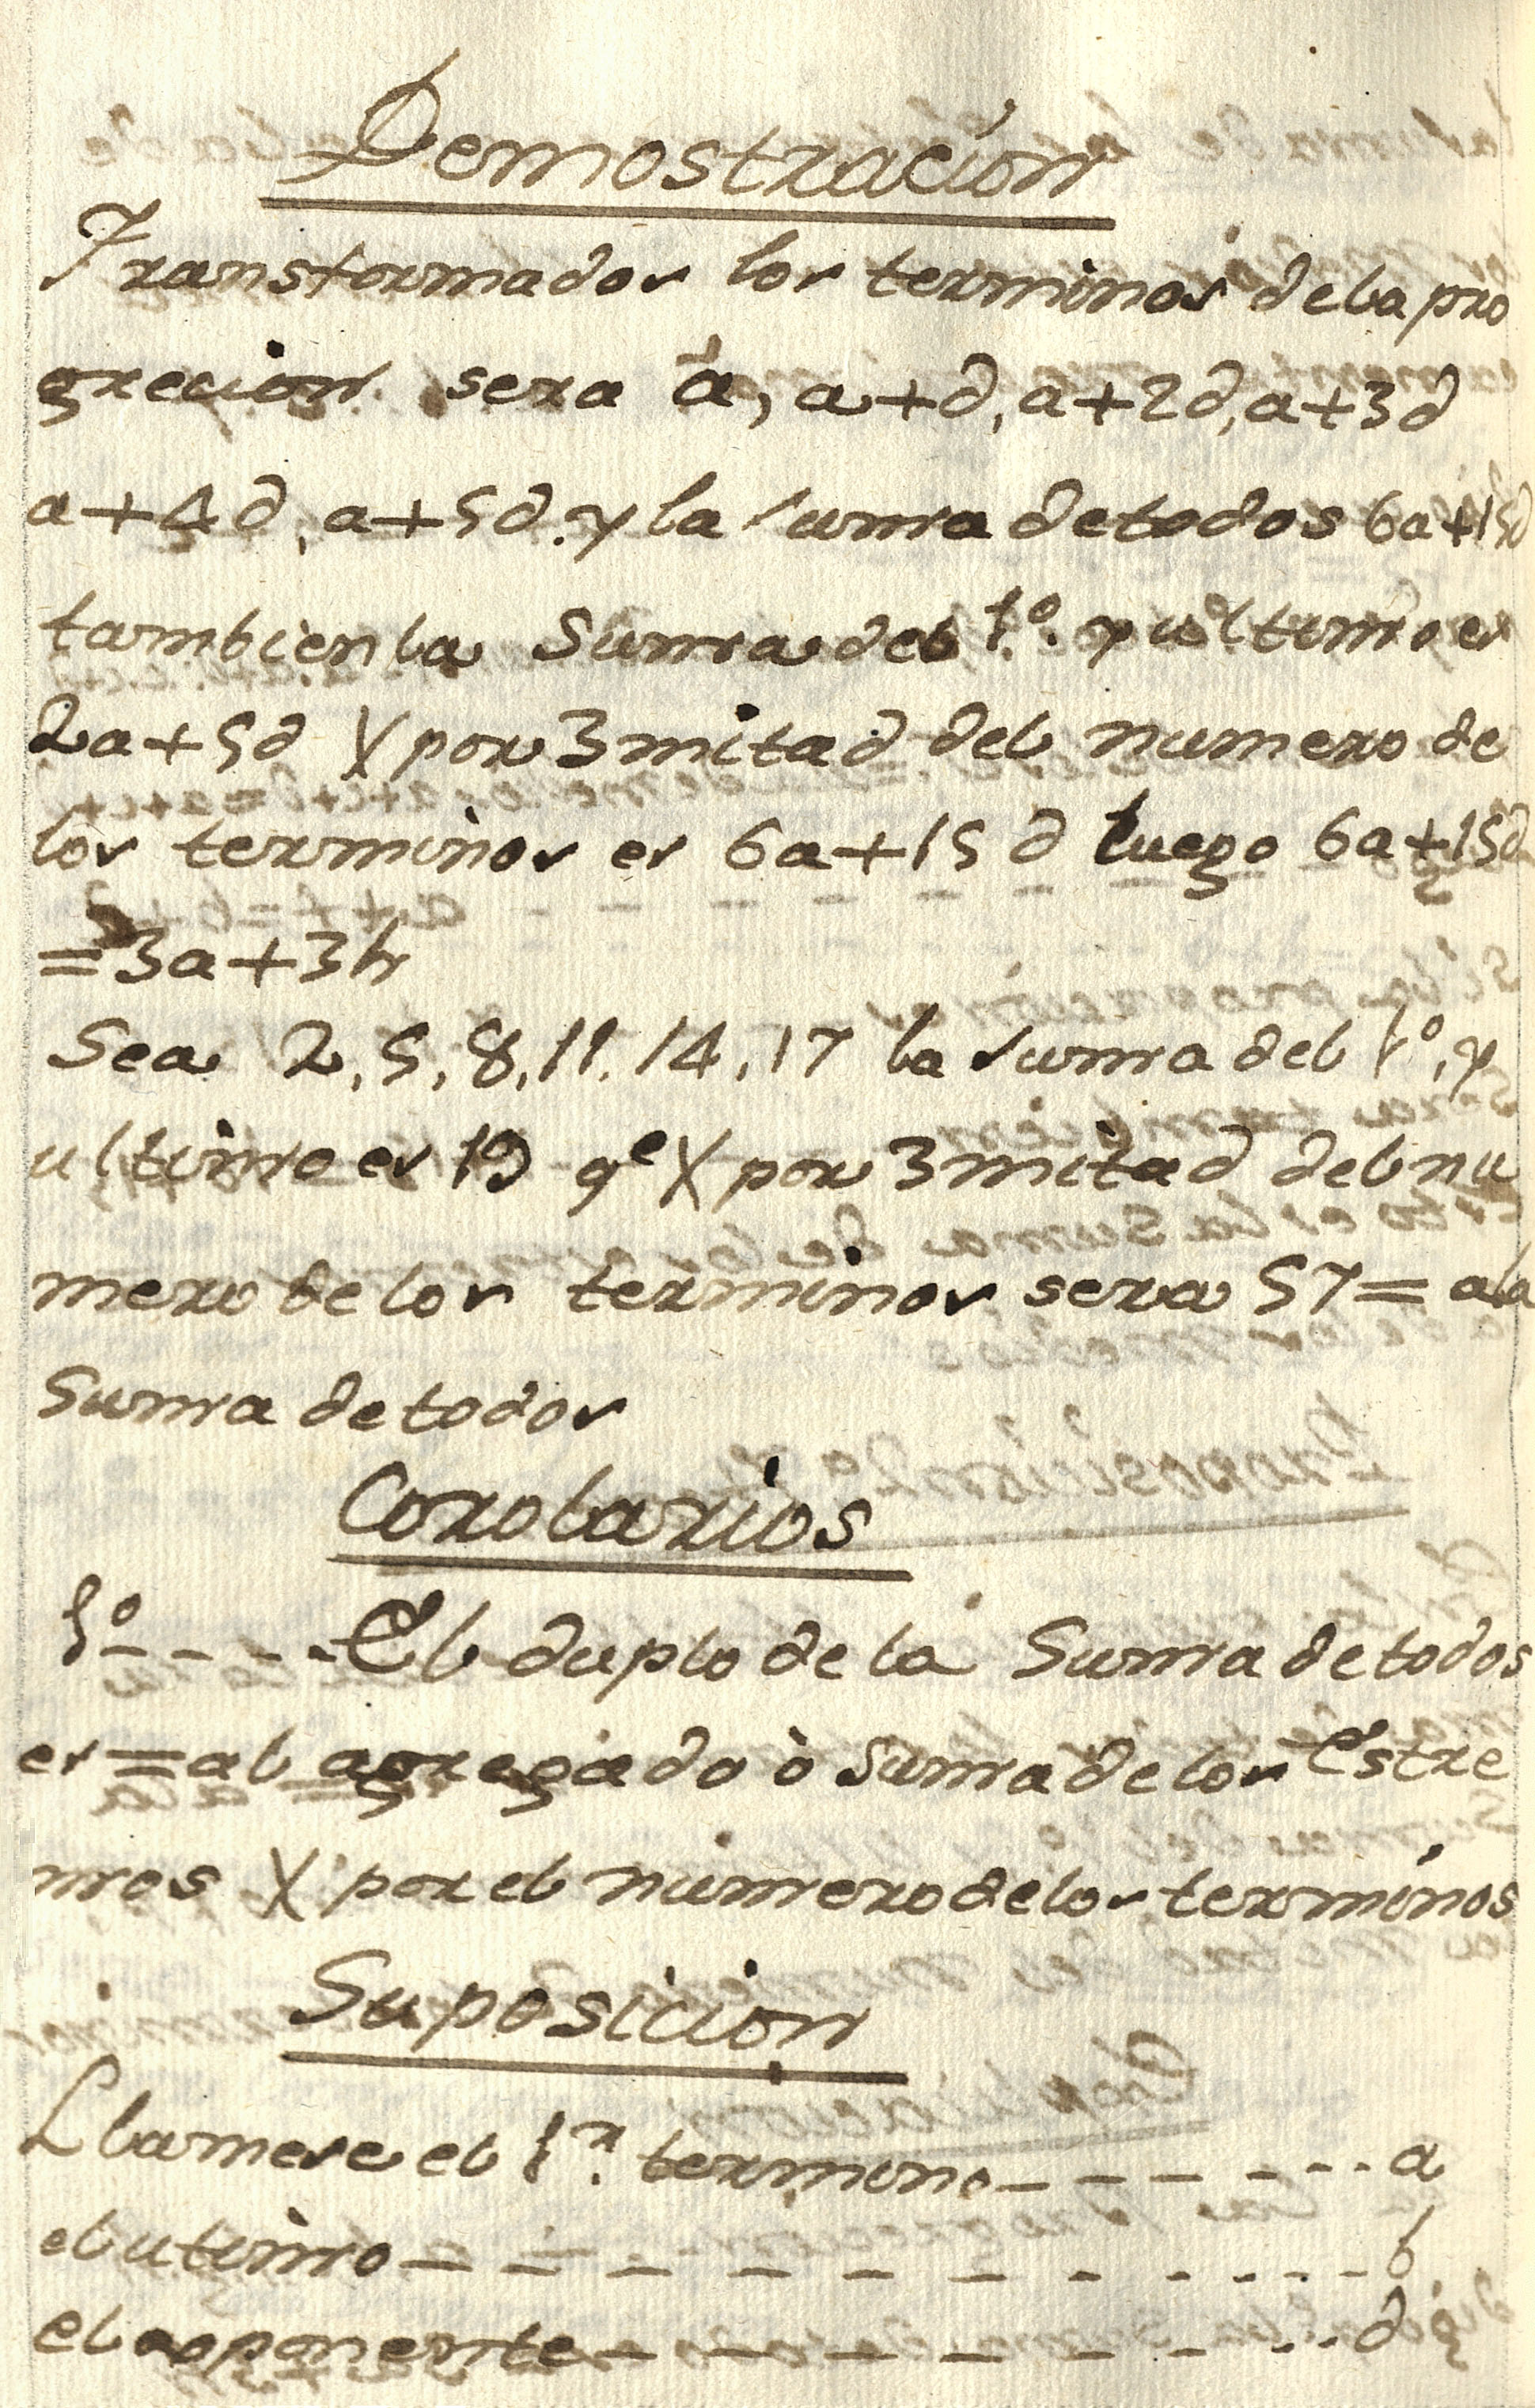 Demostracion
Transformados los terminos dela pro
grecion sera a, a+d, a+2d, a+3d
a+4d, a+5d. y la suma detodos 6a+15d
tambien la Suma del 1º. y ultimo es
2a+5d X por 3 mitad del numero de
los terminos es 6a+15d luego 6a+15d
=3a+3h
Sea 2, 5, 8, 11, 14, 17 la suma del 1º, y
ultimo es 19 qe X por 3 mitad del nu
mero de los terminos sera 57= ala
Suma detodos
Corolarios
1º----- El duplo de la Suma detodos
es = al agregado ò suma delos Estre
mos X por el numero delos terminos
Suposicion
Llamese el 1r. termino------- a
el utimo ------------- b
el esponente ---------- d